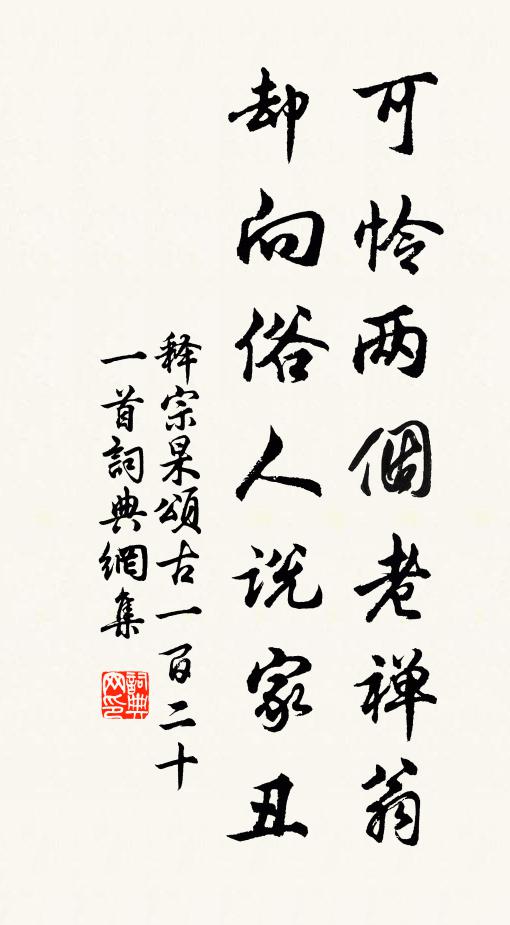 可怜两個老禅翁
却向俗人说家丑
释宗杲頌古一百二十
一首詞典網集
詞典网印